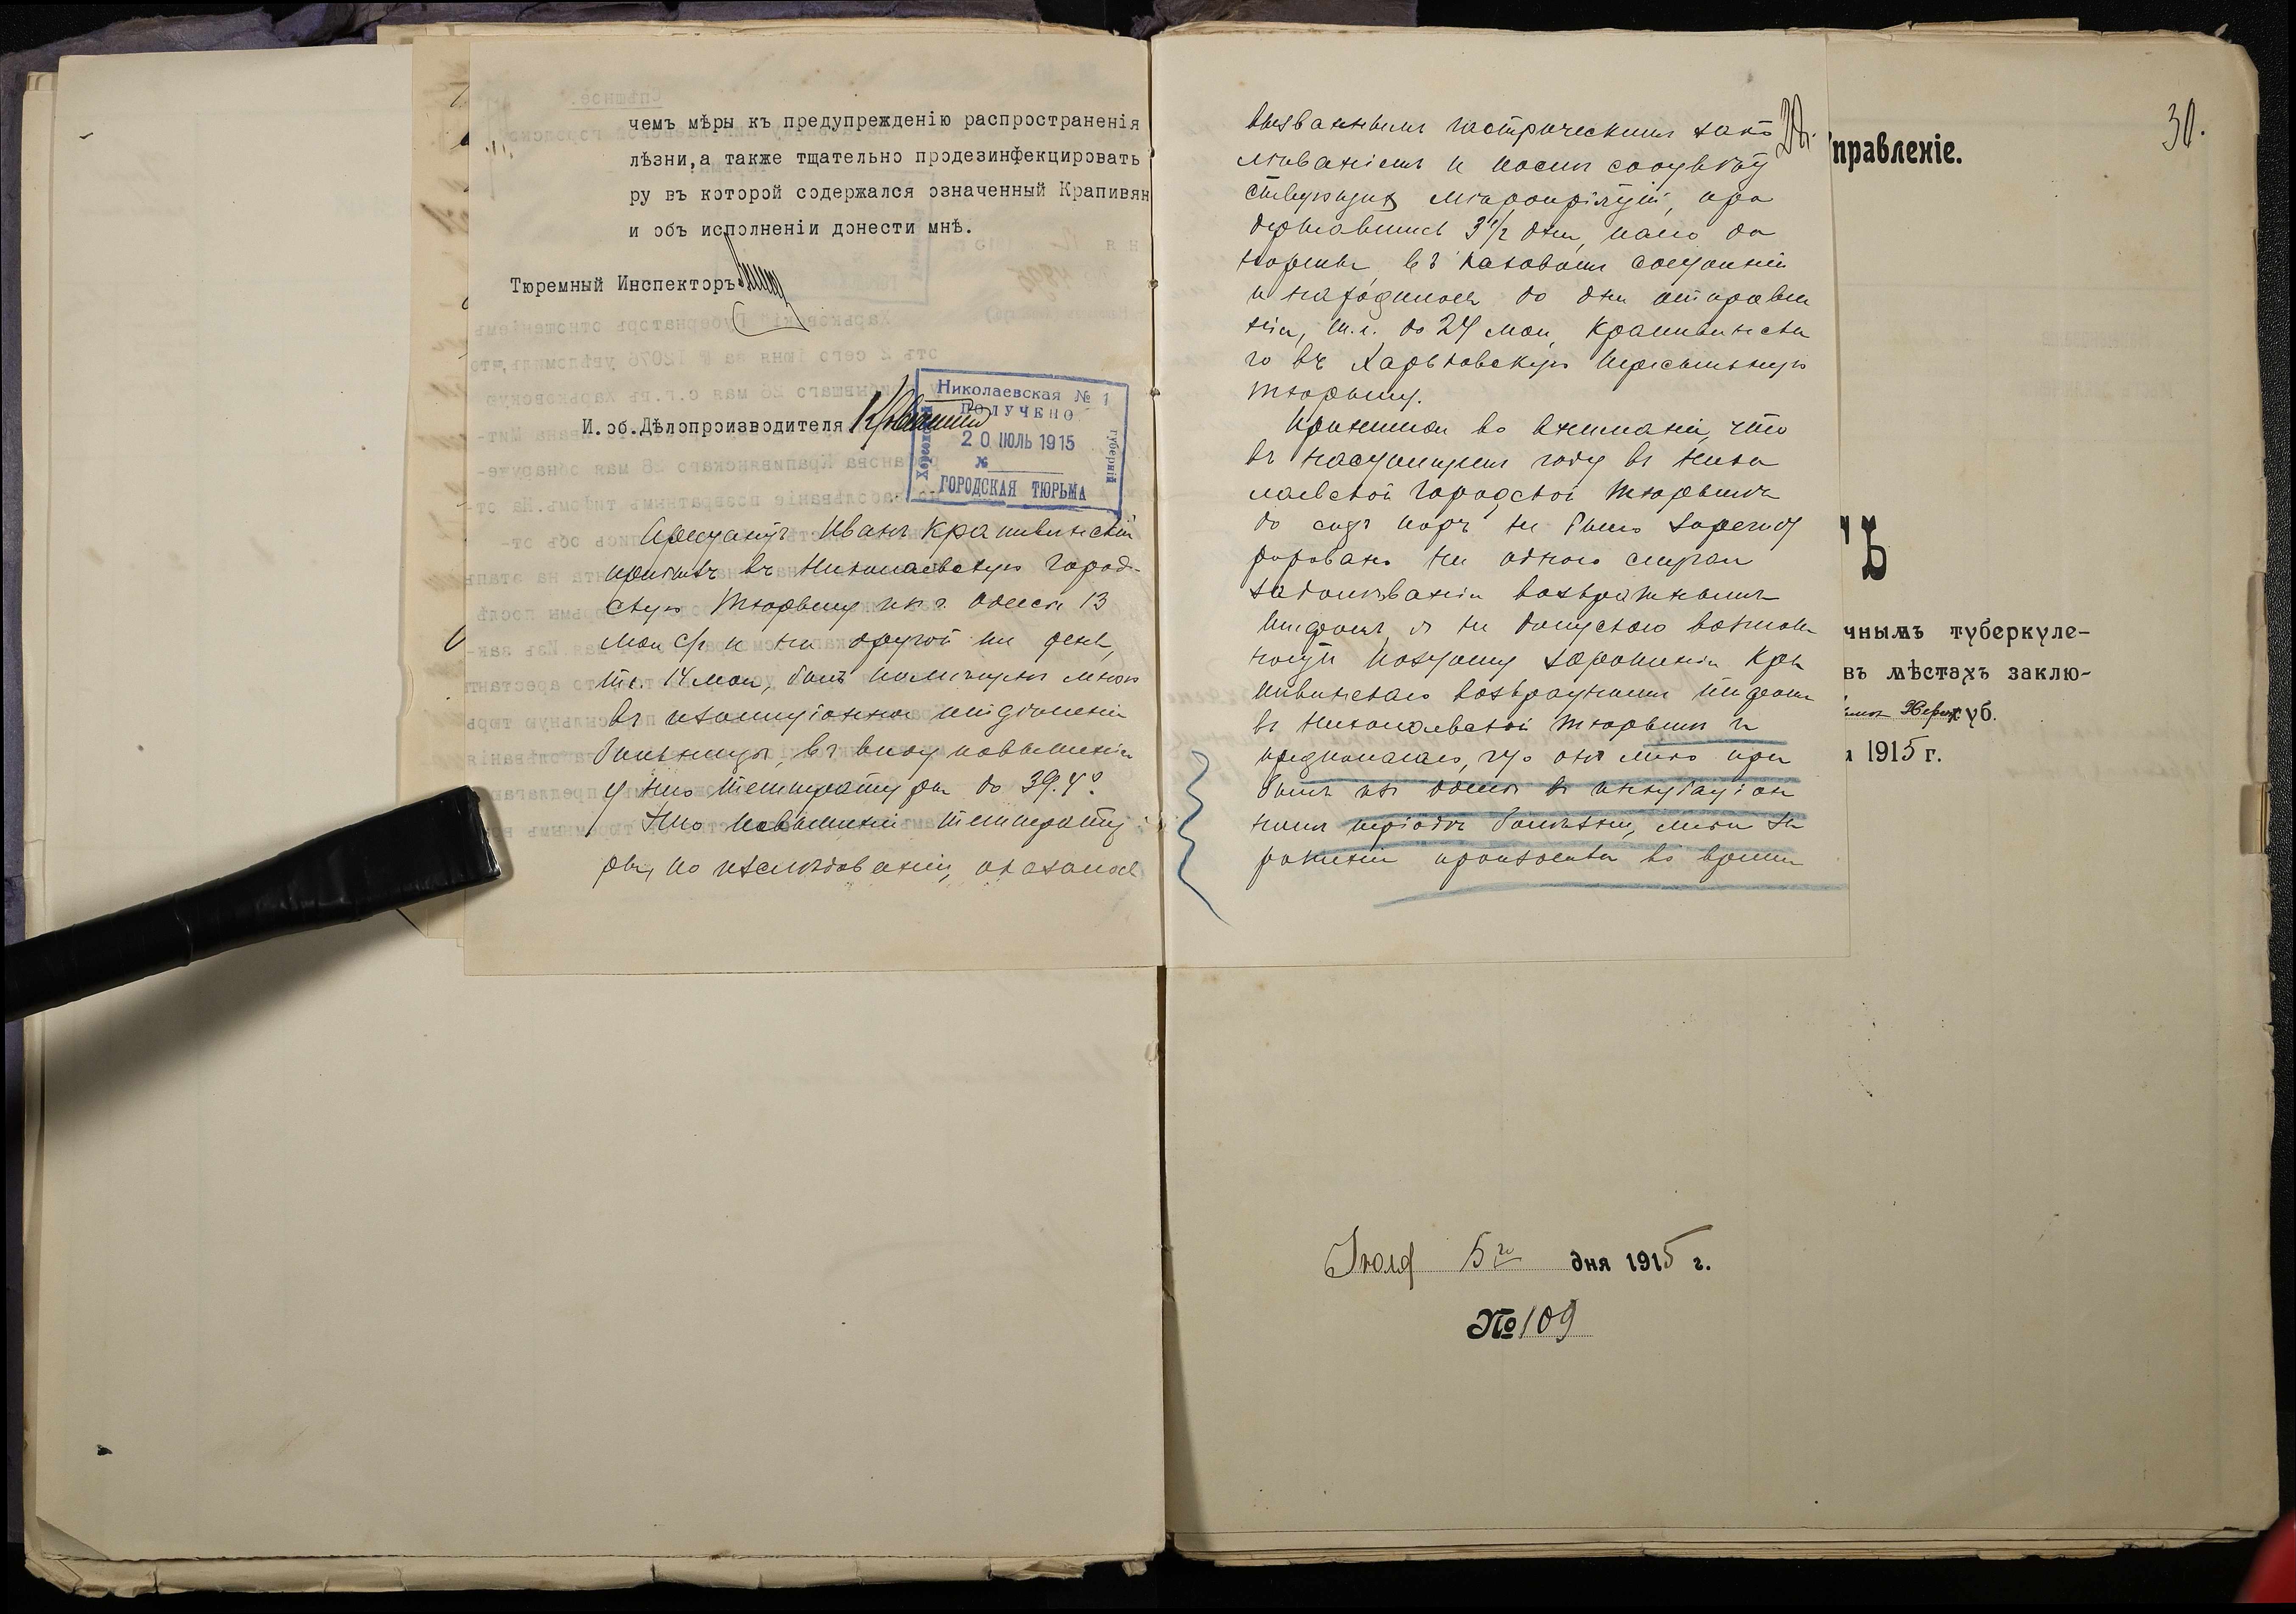 чемъ мѣры къ предупрежденію распространенія
лѣзни,а также тщательно продезинфекцировать
ру въ которой содержался означенный Крапивян
и объ исполненіи донести мнѣ.
Тюремный Инспекторъ
И.об.Дѣлопроизводителя
Николаевская № 1
ПОЛУЧЕНО
20 ІЮЛЬ 1915
№
ГОРОДСКАЯ ТЮРЬМА
Херсонской
губерніи
Арестантъ Иванъ Крапивянскій
прибылъ въ Николаевскую город-
скую тюрьму изъ г. Одессы 13
мая с/г и на другой же день,
т.е. 14 мая, былъ помѣщенъ мною
въ изоляціонное отдѣленіе
больницы, въ виду повышенія
у него температуры до 39.4°.
Это повышеніе температу
ры, по изслѣдованіи, оказалось
29.
вызваннымъ гастрическимъ забо
лѣваніемъ и послѣ соотвѣт
ствующихъ мѣропріятій, про
державшись 3 1/2 дня, пало до
нормы, въ каковомъ состояніи
и находилось до дня отправле
нія, т.е. до 24 мая, Крапивянска
го въ Харьковскую пересыльную
тюрьму.
Принимая во вниманіе, что
въ настоящемъ году въ Нико
лаевской городской тюрьмѣ
до сихъ поръ не было зарегист
рировано ни одного случая
заболѣванія возвратнымъ
тифомъ, я не допускаю возмож
ности посему зараженія Кра
пивянскаго возвратнымъ тифомъ
въ Николаевской тюрьмѣ и
предполагаю, что онъ либо при
былъ изъ Одессы въ инкубаціон
номъ періодѣ болѣзни, либо за
раженіе произошло во время
30.
Управленіе.
Ъ
чнымъ туберкуле-
въ мѣстахъ заклю-
Херсон губ.
1915 г.
Іюля 5го дня 1915 г.
№ 109